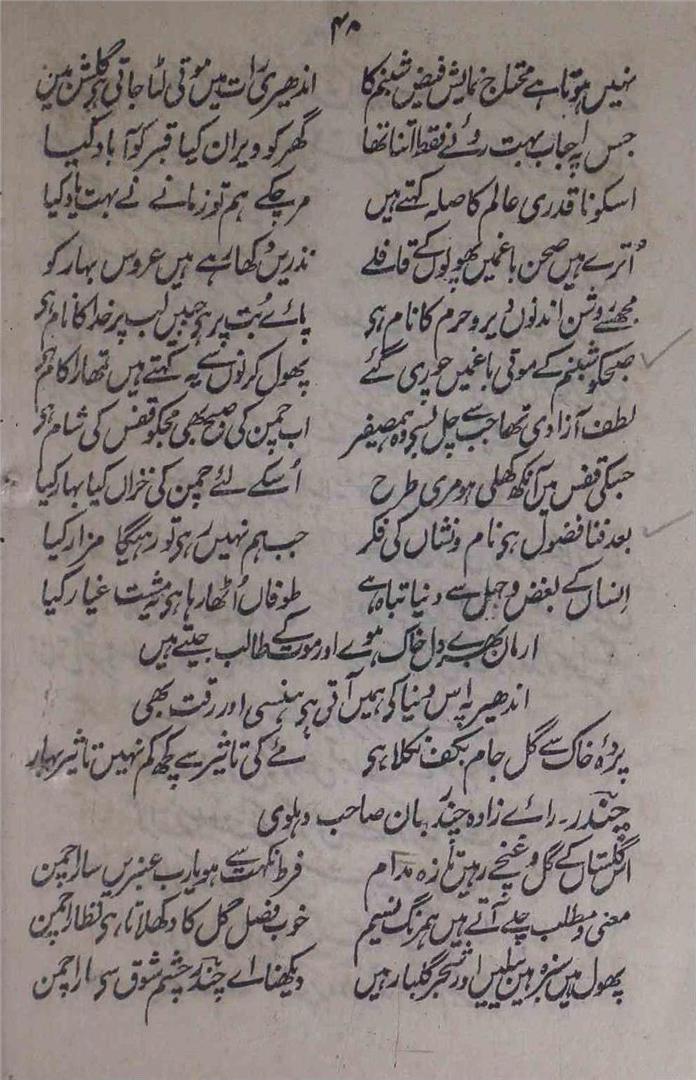 ۴۰
نہیں ہوتا ہے محتاج نمایش فیض شبنم کا اندھیری رات میں موتی لٹا جاتی ہی گلشن مین
جس پہ احباب بہت روئے فقط اتنا تھا گھر کو ویران کیا قبر کو آباد کیا
اسکو ناقدری عالم کا صلہ کہتے ہیں مر چکے ہم تو زمانے نے بہت یاد کیا
اُترے ہیں صحن باغمیں پھولوں کے قافلے نذریں دکھا رہے ہیں عروس بہار کو
مجھسے روشن اندنوں دیر و حرم کا نام ہی پائے بُت پر ہی جبیں لب پر خدا کا نام ہی
صبحکو شبنم کے موتی باغمیں چوری گئے پھول کرنوں سے یہ کہتے ہیں تمھارا کام ہی
لطف آزادی تھا جب سے چل بسی وہ ہمصیفر اب چمن کی صبح بھی مجکو قفس کی شام ہی
جسکی قفس میں آنکھ کھلی ہو مری طرح اُسکے لئے چمن کی خزاں کیا بہار کیا
بعد فنا فضول ہی نام و نشاں کی فکر جب ہم نہیں رہی تو رہیگا مزار کیا
اِنساں کے بغض و جہل سے دنیا تباہ ہے طوفاں اُٹھا رہا ہی یہ مشت غبار کیا
ارمان بھرے دل خاک ہوے اور موت کے طالب جیتے ہیں
اندھیر پہ اس دنیا کی ہمیں آتی ہی ہنسی اور رقت بھی
پردۂ خاک سے گل جام بکف نکلا ہی مے کی تاثیر سے کچھ کم نہیں تاثیر بہار
چندر۔ رائے زادہ چندر بھان صاحب دہلوی
اس گلستاں کے گل و غنچے رہیں تازہ مدام فرط نکہت سے ہو یارب عنبریں سارا چمن
معنی و مطلب چلے آتے ہیں ہمرنگ نسیم خوب فصل گل کا دکھلاتا ہی نظارا چمن
پھول ہیں سبزہ ہیں بیلیں اور شجر گلبار ہیں دیکھنا اے چندر چشم شوق سی سارا چمن